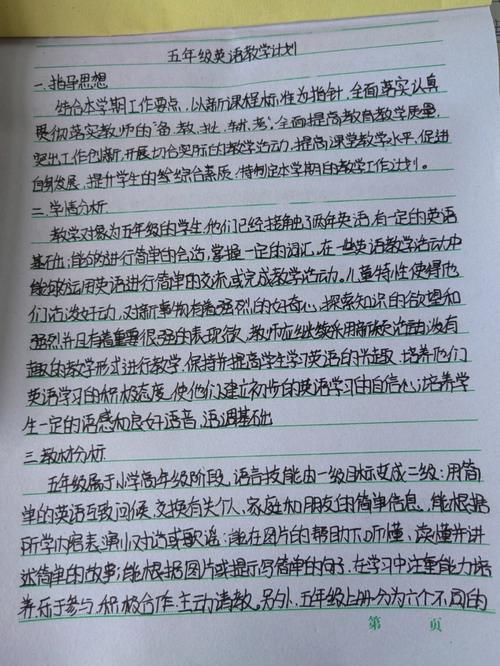 五年级英语教学计划
一.指导思想
结合本学期工作要点,以新课程标准为指针,全面落实认真
贯彻落实教师的“备、教、批、辅、考”,全面提高教育教学质量,
突出工作创新,开展切合实际的教学活动,提高课堂教学水平,促进
自身发展,提升学生的综合素质,特制定本学期的教学工作计划。
二.学情分析
教学对象为五年级的学生,他们已经接触了两年英语,有一定的英语
基础;能够进行简单的会话,掌握一定的词汇,在一些英语教学活动中
能够运用英语进行简单的交流或完成教学活动。儿童特性使得他
们活泼好动,对新事物有着强烈的好奇心,探索知识的欲望和
强烈并且有着重要很强的表现欲,教师应继续采用新灵活有
趣的教学形式进行教学,保持并提高学生学习英语的兴趣,培养他们
英语学习的积极态度,使他们建立初步的英语学习的自信心;培养学
生一定的语感和良好语音、语调基础
三.教材分析
五年级属于小学高年级阶段,语言技能由一级目标变成二级:用简
单的英语互致问候、交换有关个人、家庭和朋友的简单信息,能根据
所学内容表演小对话或歌谣;能在图片的帮助下听懂、读懂并讲
述简单的故事;能根据图片或提示写简单的句子,在学习中注重能力培
养,乐于参与,积极合作,主动请教。另外,五年级上册分为六个不同的
第 页